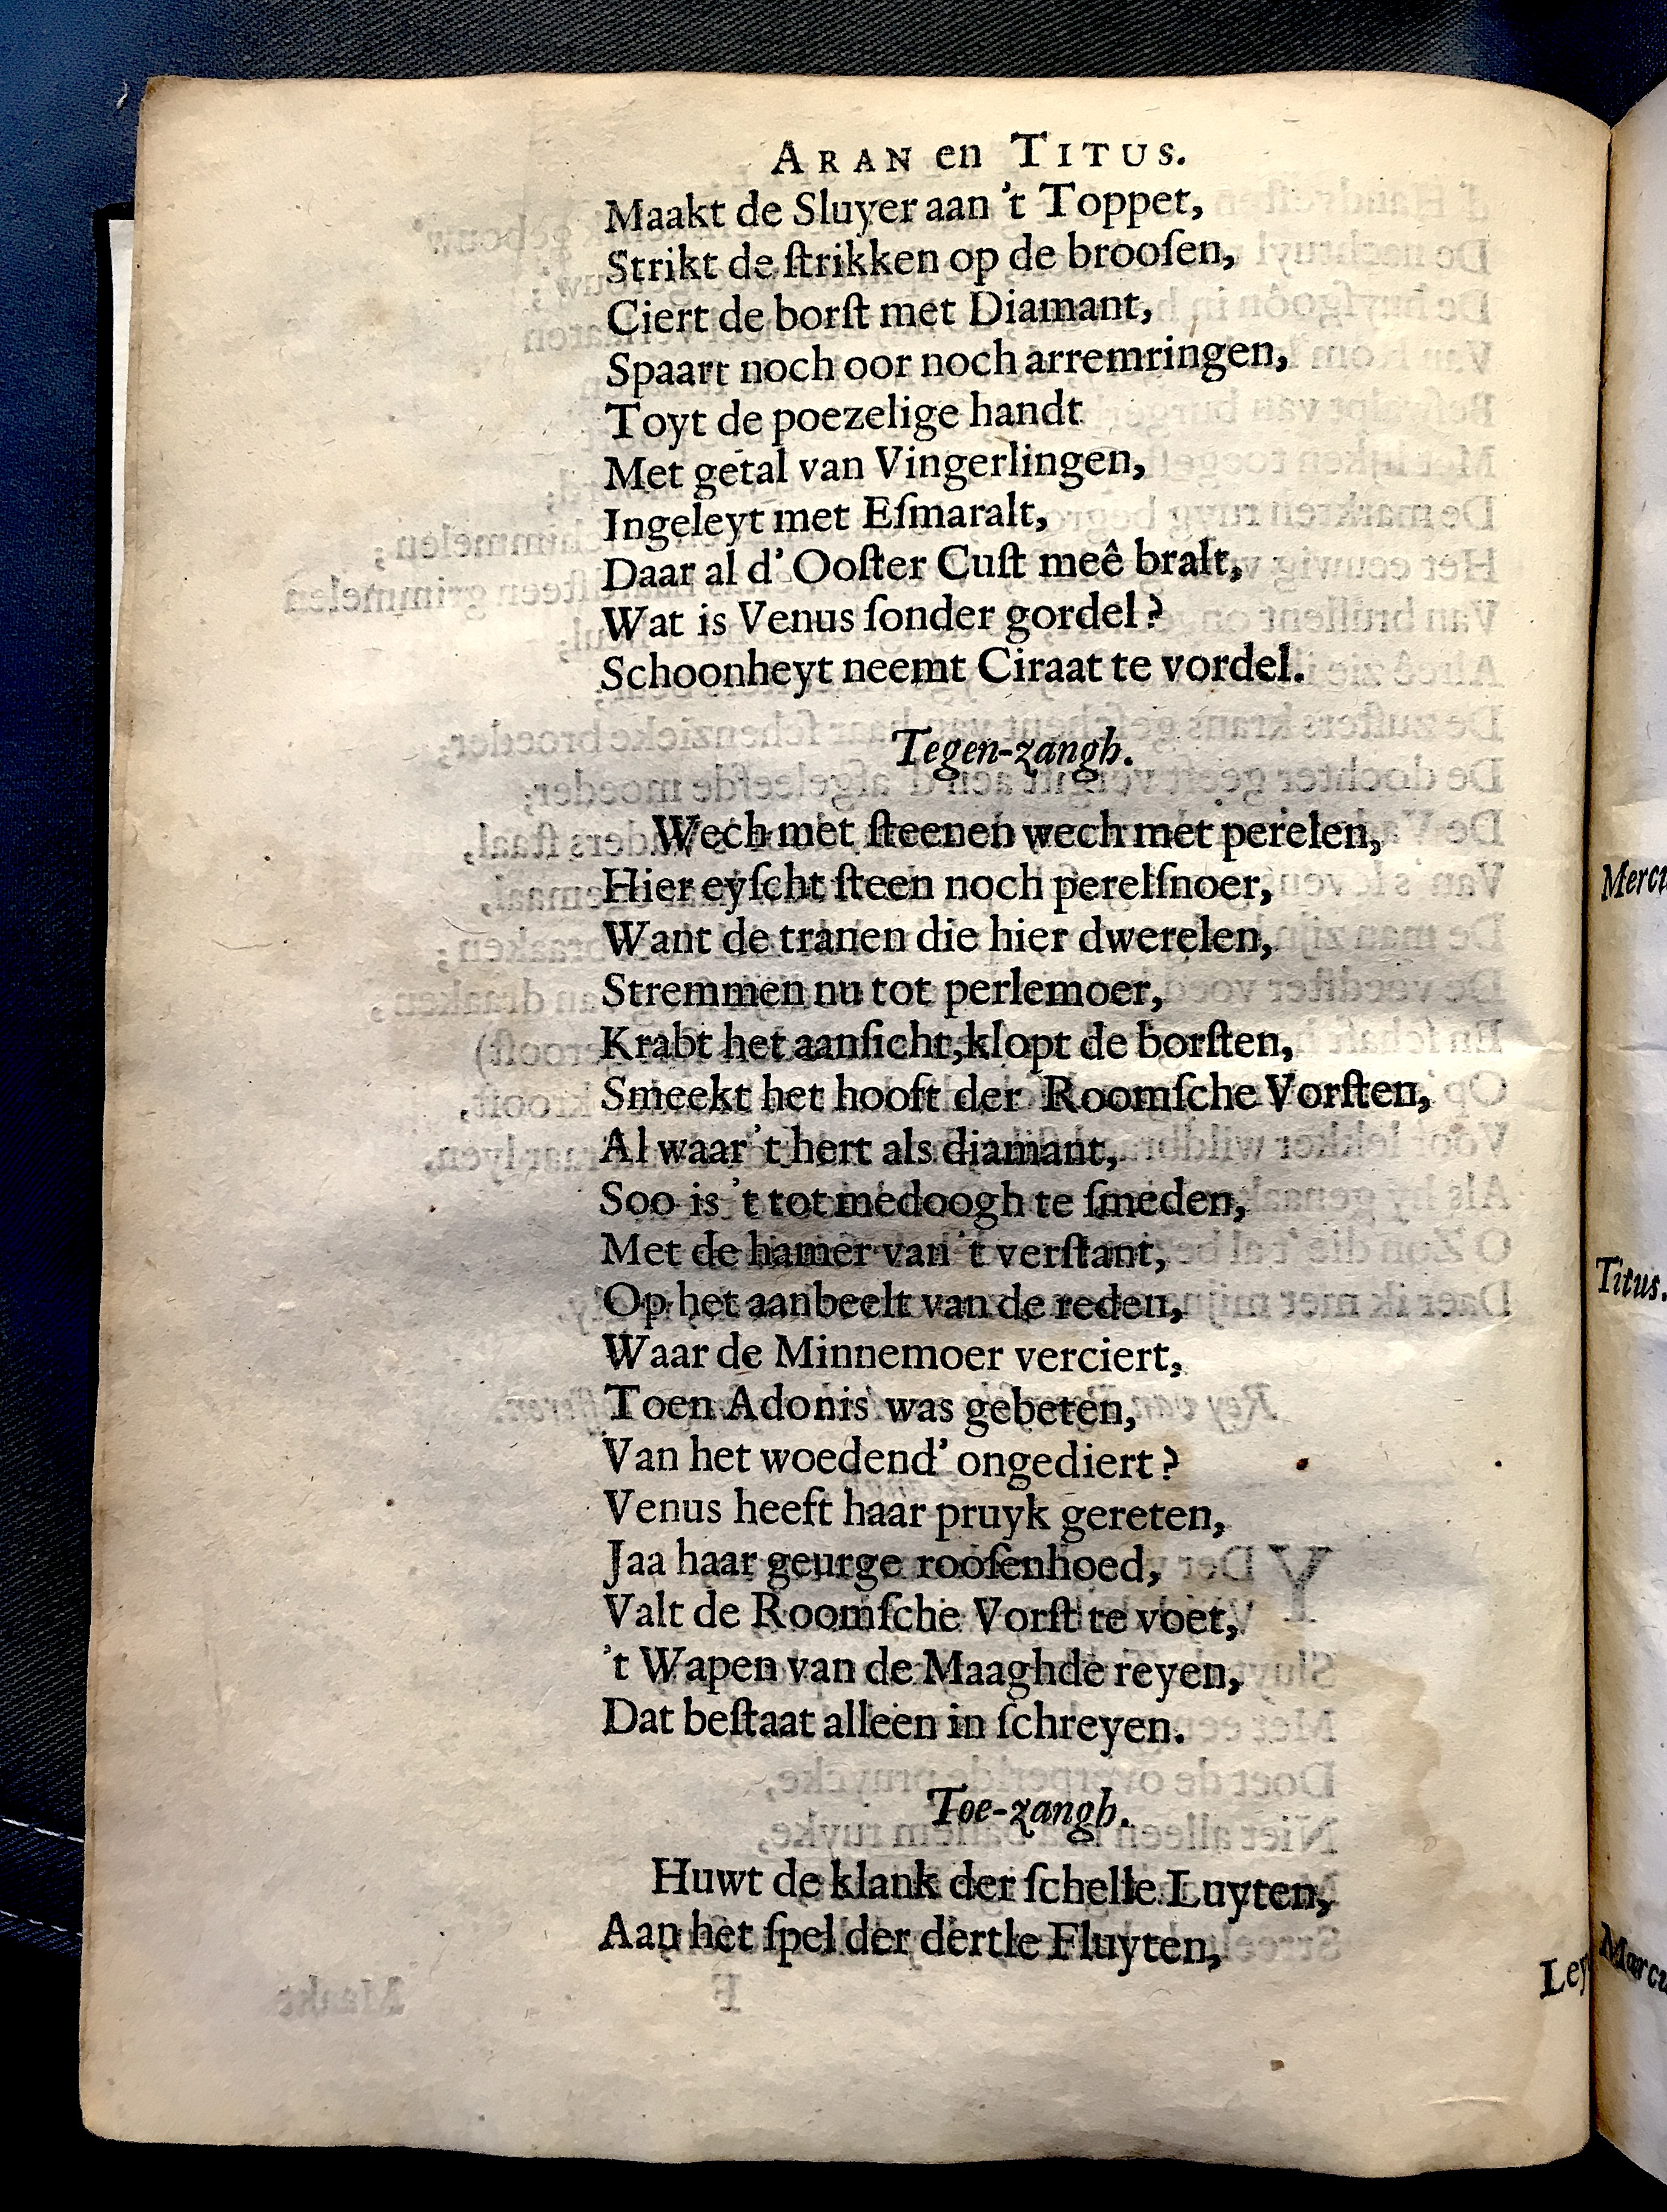 ARAN en TITUS.
Maakt de Sluyer aan 't Toppet,
Strikt de ſtrikken op de brooſen,
Ciert de borſt met Diamant,
Spaart noch oor noch arremringen,
Toyt de poezelige handt
Met getal van Vingerlingen,
Ingeleyt met Eſmaralt,
Daar al d' Ooſter Cuſt meê bralt,
Wat is Venus ſonder gordel?
Schoonheyt neemt Ciraat te vordel.
Tegen-zangh.
Wech met ſteenen wech met perelen,
Hier eyſcht ſteen noch perelſnoer,
Want de tranen die hier dwerelen,
Stremmen nu tot perlemoer,
Krabt het aanſicht, klopt de borſten,
Smeekt het hooft der Roomſche Vorſten,
Al waar 't hert als diamant,
Soo is 't tot medoogh te ſmeden,
Met de hamer van 't verſtant,
Op het aanbeelt van de reden,
Waar de Minnemoer verciert,
Toen Adonis was gebeten,
Van het woedend' ongediert?
Venus heeft haar pruyk gereten,
Jaa haar geurge rooſenhoed,
Valt de Roomſche Vorſt te voet,
't Wapen van de Maaghde reyen,
Dat beſtaat alleen in ſchreyen.
Toe-zangh.
Huwt de klank der ſchelle Luyten,
Aan het ſpel der dertle Fluyten,
Ley
Titus.